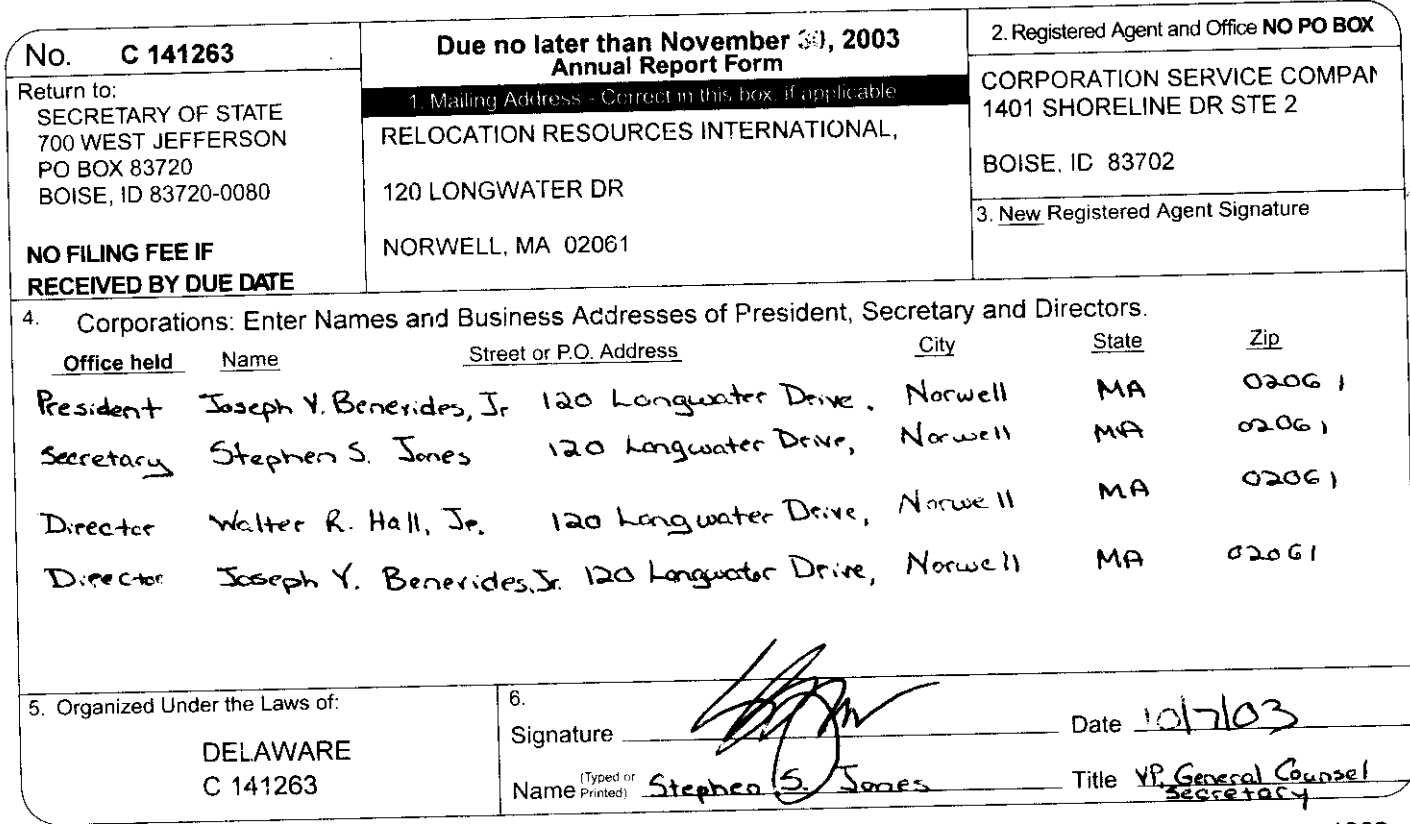 No. C 141263
Return to:
SECRETARY OF STATE
700 WEST JEFFERSON
PO BOX 83720
BOISE, ID 83720-0080
NO FILING FEE IF
RECEIVED BY DUE DATE
Due no later than November 30, 2003
Annual Report Form
1. Mailing Address - Correct in this box, if applicable
RELOCATION RESOURCES INTERNATIONAL,
120 LONGWATER DR
NORWELL, MA 02061
2. Registered Agent and Office NO PO BOX
CORPORATION SERVICE COMPAN
1401 SHORELINE DR STE 2
BOISE, ID 83702
3. New Registered Agent Signature
4. Corporations: Enter Names and Business Addresses of President, Secretary and Directors.
Office held Name Street or P.O. Address City State Zip
President Joseph Y. Benevides, Jr 120 Longwater Drive, Norwell MA 02061
Secretary Stephen S. Jones 120 Longwater Drive, Norwell MA 02061
Director Walter R. Hall, Jr. 120 Longwater Drive, Norwell MA 02061
Director Joseph Y. Benevides, Jr. 120 Longwater Drive, Norwell MA 02061
5. Organized Under the Laws of:
DELAWARE
C 141263
6.
Signature Date 10/7/03
Name (Typed or Printed) Stephen S. Jones Title VP, General Counsel
Secretary